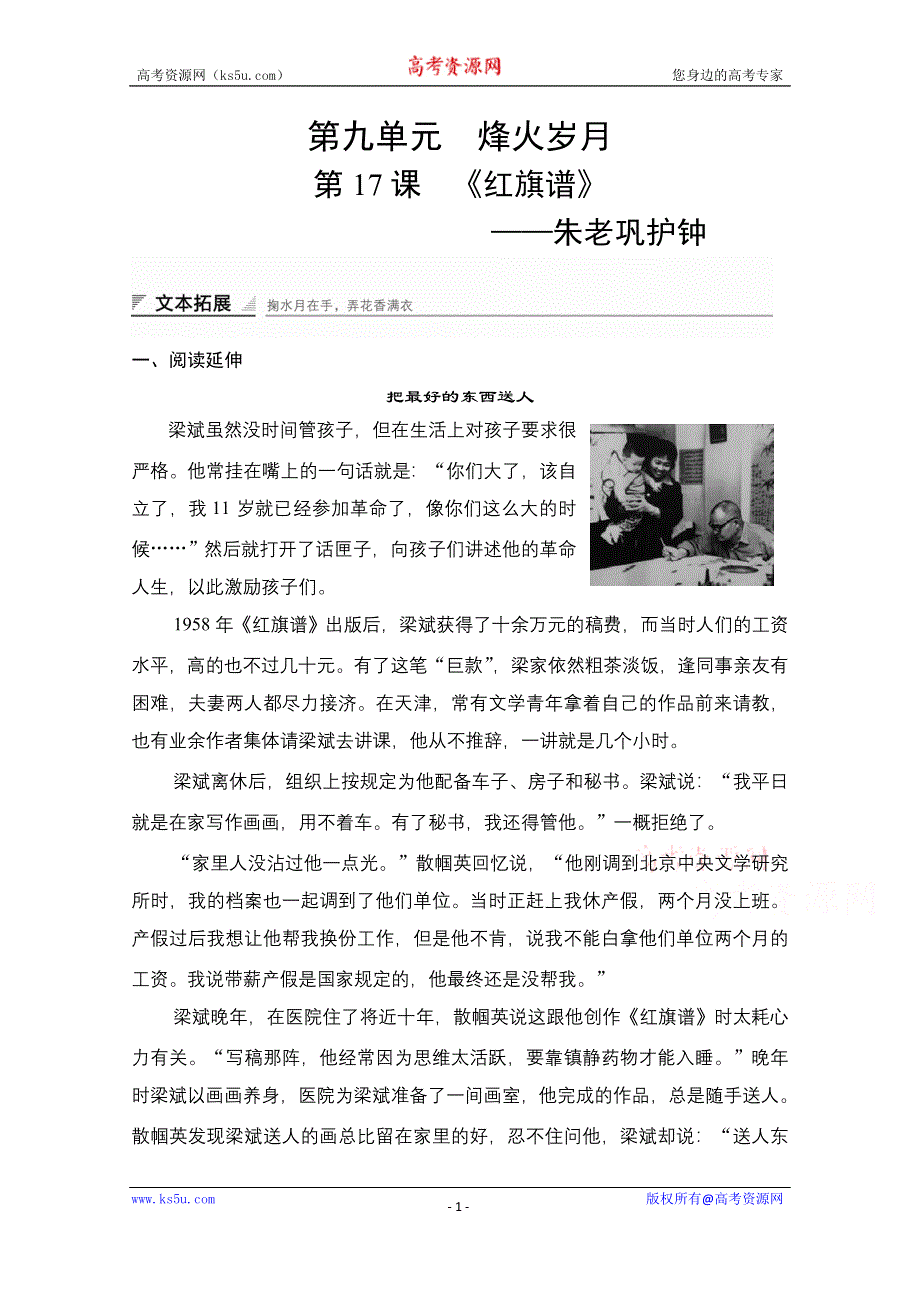 高考资源网（ks5u.com）
高考资源网
您身边的高考专家
第九单元　烽火岁月
第 17 课　《红旗谱》
——朱老巩护钟
文本拓展
掬水月在手，弄花香满衣
一、阅读延伸
把最好的东西送人
梁斌虽然没时间管孩子，但在生活上对孩子要求很
严格。他常挂在嘴上的一句话就是：“你们大了，该自
立了，我 11 岁就已经参加革命了，像你们这么大的时
候……”然后就打开了话匣子，向孩子们讲述他的革命
人生，以此激励孩子们。
1958 年《红旗谱》出版后，梁斌获得了十余万元的稿费，而当时人们的工资
水平，高的也不过几十元。有了这笔“巨款”，梁家依然粗茶淡饭，逢同事亲友有
困难，夫妻两人都尽力接济。在天津，常有文学青年拿着自己的作品前来请教，
也有业余作者集体请梁斌去讲课，他从不推辞，一讲就是几个小时。
梁斌离休后，组织上按规定为他配备车子、房子和秘书。梁斌说：“我平日
就是在家写作画画，用不着车。有了秘书，我还得管他。”一概拒绝了。
“家里人没沾过他一点光。”散帼英回忆说，“他刚调到北京中央文学研究
所时，我的档案也一起调到了他们单位。当时正赶上我休产假，两个月没上班。
产假过后我想让他帮我换份工作，但是他不肯，说我不能白拿他们单位两个月的
工资。我说带薪产假是国家规定的，他最终还是没帮我。”
梁斌晚年，在医院住了将近十年，散帼英说这跟他创作《红旗谱》时太耗心
力有关。“写稿那阵，他经常因为思维太活跃，要靠镇静药物才能入睡。”晚年
时梁斌以画画养身，医院为梁斌准备了一间画室，他完成的作品，总是随手送人。
散帼英发现梁斌送人的画总比留在家里的好，忍不住问他，梁斌却说：“送人东
www.ks5u.com
- 1 -
版权所有@高考资源网